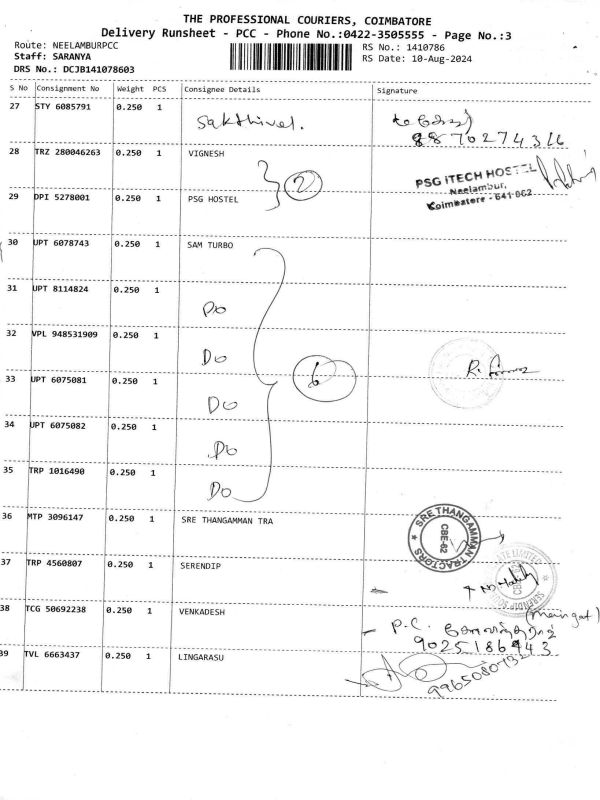 THE PROFESSIONAL COURIERS, COIMBATORE
Delivery Runsheet - PCC - Phone No.:0422-3505555 - Page No.:3
Route: NEELAMBURPCC RS No.: 1410786
Staff: SARANYA RS Date: 10-Aug-2024
DRS No.: DCJB141078603
S No Consignment No Weight PCS Consignee Details Signature
27 STY 6085791 0.250 1 Sakthivel.
8870274316
28 TRZ 280046263 0.250 1 VIGNESH
2
PSG iTECH HOSTEL
Neelambur,
Coimbatore - 641 062
29 DPI 5278001 0.250 1 PSG HOSTEL
30 UPT 6078743 0.250 1 SAM TURBO
31 UPT 8114824 0.250 1 Do
32 VPL 948531909 0.250 1 Do
33 UPT 6075081 0.250 1 Do
6
34 UPT 6075082 0.250 1 Do
35 TRP 1016490 0.250 1 Do
36 MTP 3096147 0.250 1 SRE THANGAMMAN TRA
SRE THANGAMMAN TRACTORS
CBE-62
37 TRP 4560807 0.250 1 SERENDIP
38 TCG 50692238 0.250 1 VENKADESH
(Main gat)
P.C.
9025186943
39 TVL 6663437 0.250 1 LINGARASU
9965080732